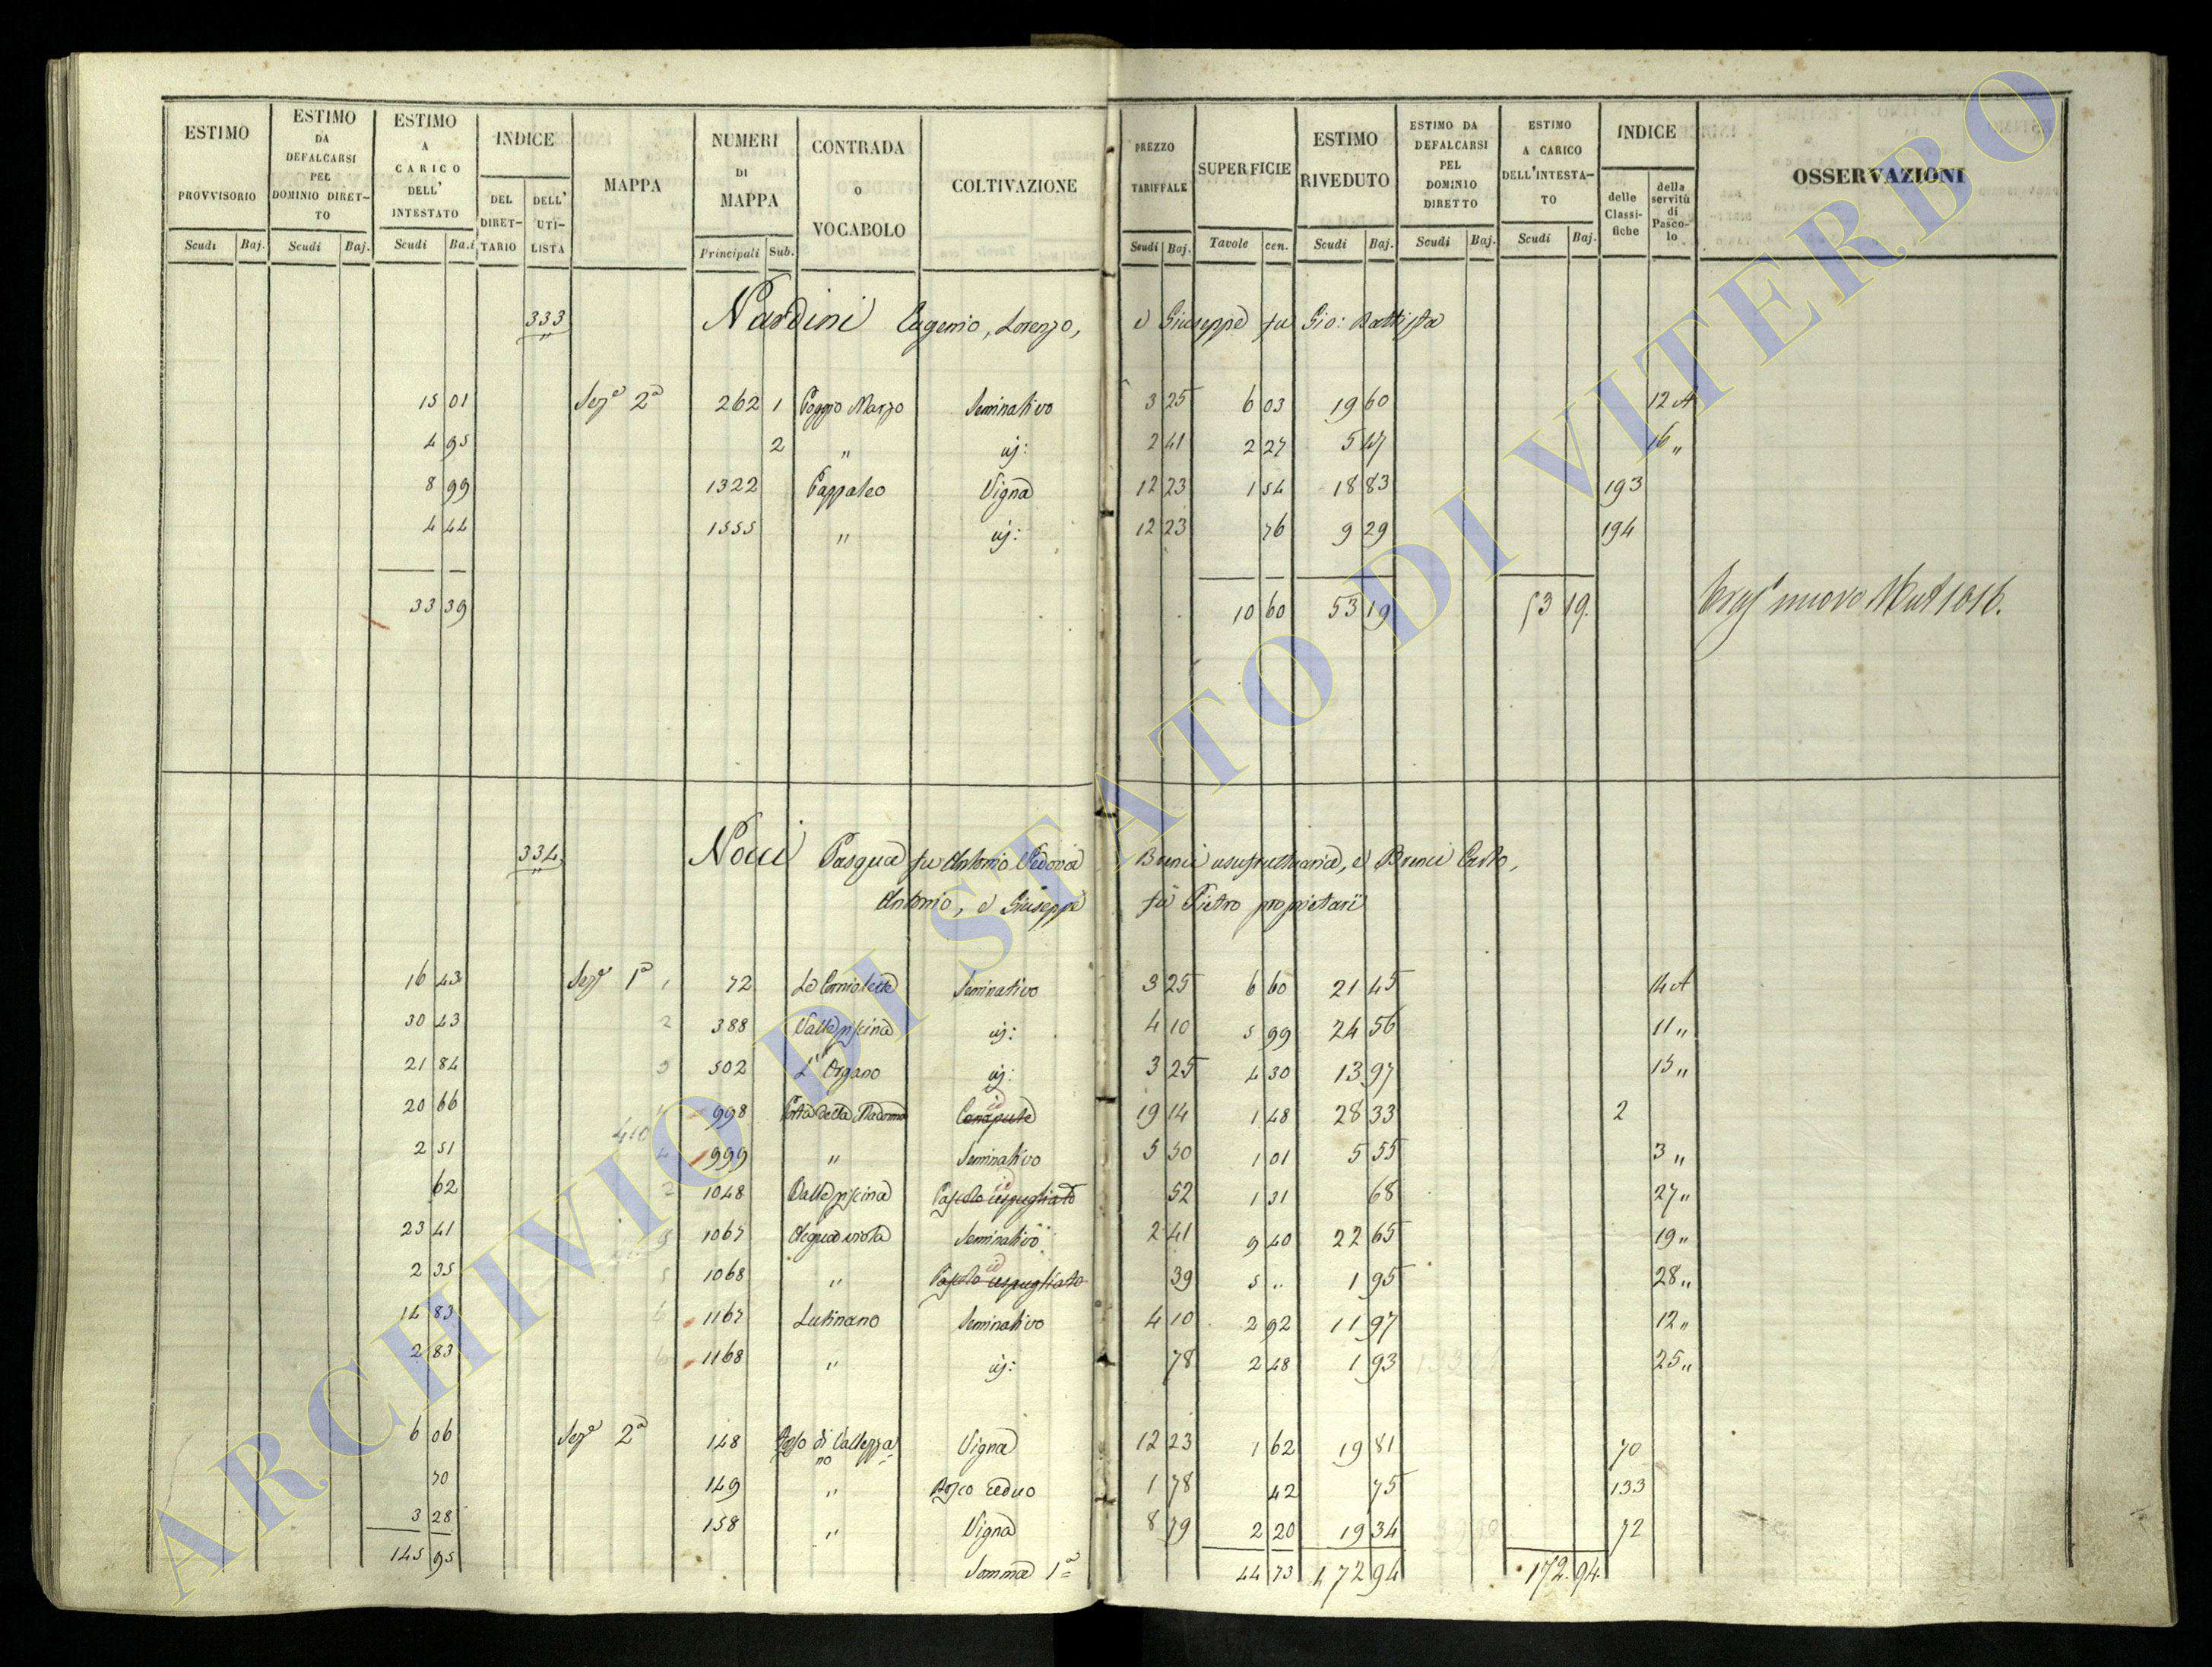 ESTIMO PROVVISORIO Scudi Baj.
ESTIMO DA DEFALCARSI PEL DOMINIO DIRET-TO Scudi Baj.
ESTIMO A CARICO DELL' INTESTATO Scudi Ba.i
INDICE DEL DIRET-TARIO DELL' UTI-LISTA
MAPPA
NUMERI DI MAPPA Principali Sub.
CONTRADA O VOCABOLO
COLTIVAZIONE
PREZZO TARIFFALE Scudi Baj.
SUPERFICIE Tavole cen.
ESTIMO RIVEDUTO Scudi Baj.
ESTIMO DA DEFALCARSI PEL DOMINIO DIRETTO Scudi Baj.
ESTIMO A CARICO DELL'INTESTA-TO Scudi Baj.
INDICE delle Classi-fiche della servitù di Pasco-lo
OSSERVAZIONI
333 Nardini Eugenio, Lorenzo, e Giuseppe fu Gio: Battista
15 01 Sez.e 2a 262 1 Poggio Marzo Seminativo 3 25 6 03 19 60 12 A
4 95 2 " id: 2 41 2 27 5 47 16 "
8 99 1322 Pappaleo Vigna 12 23 1 54 18 83 193
4 44 1555 " id: 12 23 76 9 29 194
33 39 10 60 53 19 53 19. nuovo 1016.
334 Nocci Pasqua fu Antonio Vedova Brunci usufruttuaria, e Brunci Carlo,
Antonio, e Giuseppe fu Pietro proprietari
16 43 Sez.e 1a 1 72 Le Corniolette Seminativo 3 25 6 60 21 45 14 A
30 43 2 388 Vallepiscina id: 4 10 5 99 24 56 11 "
21 84 3 502 L'Organo id: 3 25 4 30 13 97 15 "
20 66 998 Porta della Madonna Canapule id 19 14 1 48 28 33 2
410
2 51 4 999 " Seminativo 5 50 1 01 5 55 3 "
62 2 1048 Vallepiscina Pascolo cespugliato id 52 1 31 68 27 "
23 41 5 1067 Acquaviola Seminativo 2 41 9 40 22 65 19 "
2 35 5 1068 " Pascolo cespugliato id 39 5 .. 1 95 28 "
14 83 6 1167 Lutinano Seminativo 4 10 2 92 11 97 12 "
2 83 6 1168 " id: 78 2 48 1 93 25 "
6 06 Sez.e 2a 148 Fosso di Vallezzano Vigna 12 23 1 62 19 81 70
70 149 " Bosco ceduo 1 78 42 75 133
3 28 158 " Vigna 8 79 2 20 19 34 72
145 95 Somma 1a 44 73 172 94 172. 94.
ARCHIVIO DI STATO DI VITERBO